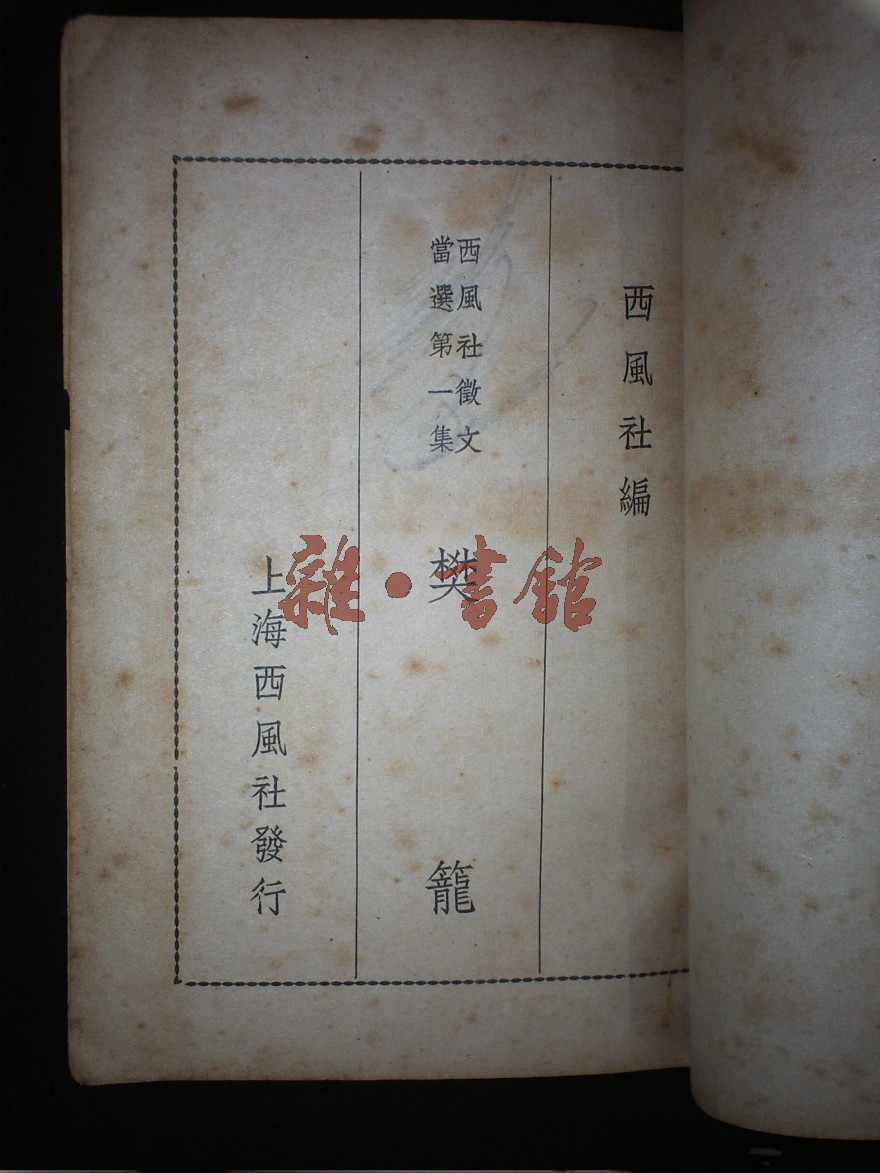 西風社編
西風社徵文
當選第一集
樊籠
上海西風社發行
雜·書館